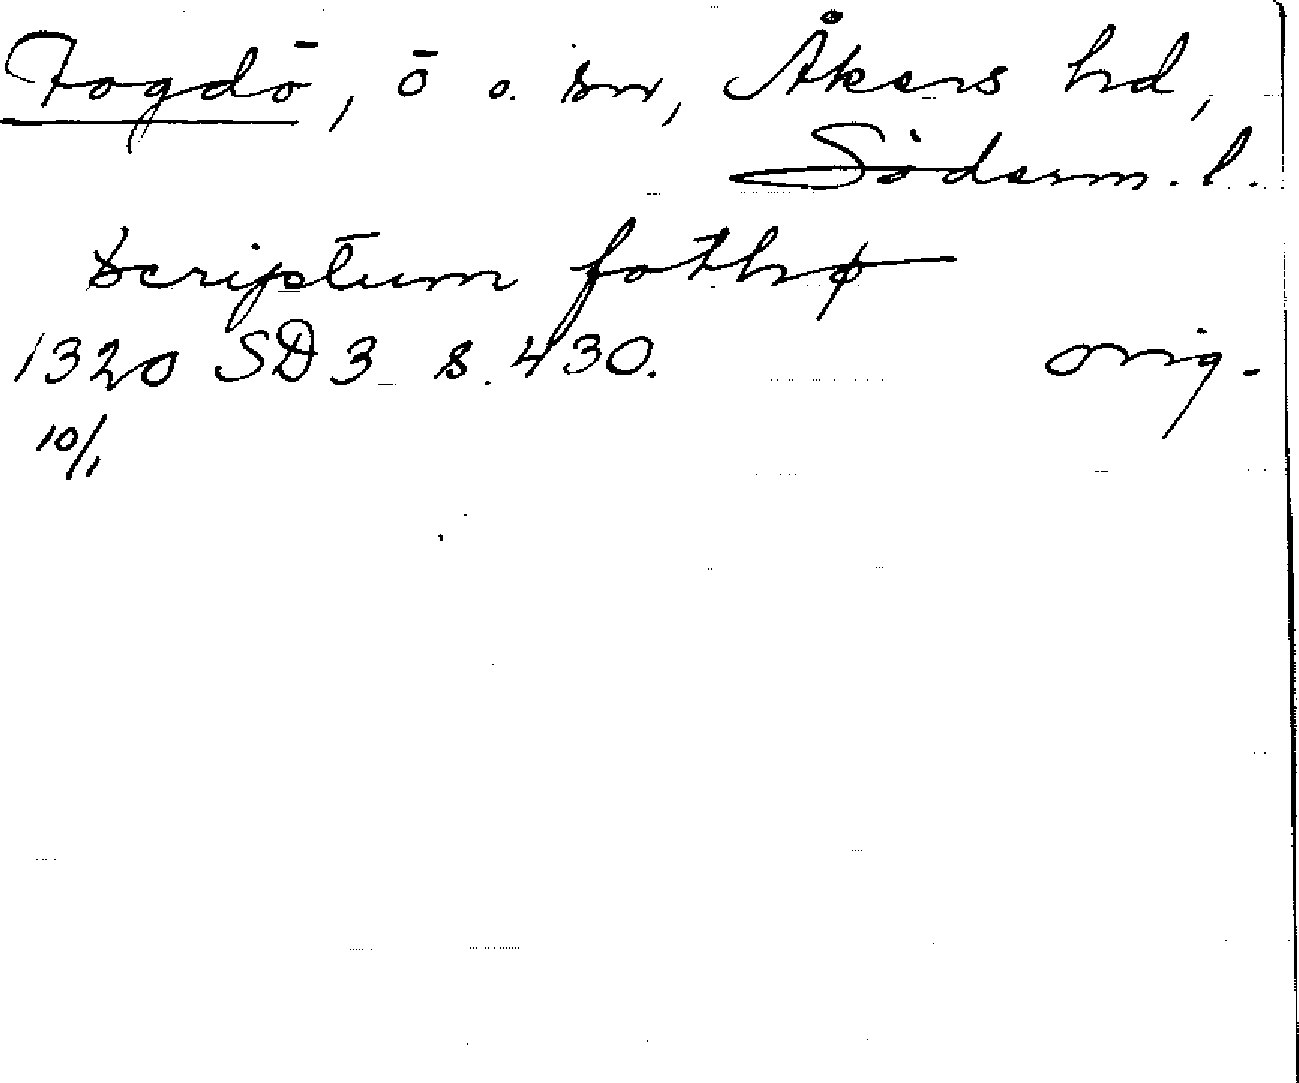 Fogdö, ö o. sn, Åkers hd,
Söderm. l.
Scriptum fothhø
1320 SD 3 s. 430. orig.
10/1